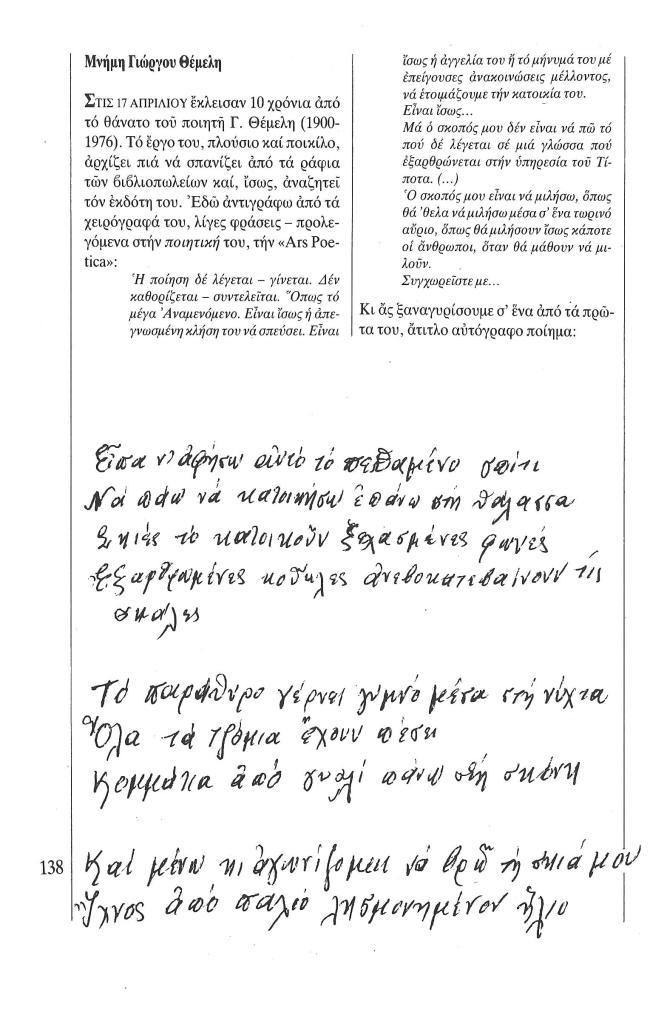 Μνήμη Γιώργου Θέμελη
ΣΤΙΣ 17 ΑΠΡΙΛΙΟΥ ἔκλεισαν 10 χρόνια ἀπό
τό θάνατο τοῦ ποιητῆ Γ. Θέμελη (1900-
1976). Τό ἔργο του, πλούσιο καί ποικίλο,
ἀρχίζει πιά νά σπανίζει ἀπό τά ράφια
τῶν βιβλιοπωλείων καί, ἴσως, ἀναζητεῖ
τόν ἐκδότη του. Ἐδῶ ἀντιγράφω ἀπό τά
χειρόγραφά του, λίγες φράσεις – προλε-
γόμενα στήν ποιητική του, τήν «Ars Poe-
tica»:
Ἡ ποίηση δέ λέγεται – γίνεται. Δέν
καθορίζεται – συντελεῖται. Ὅπως τό
μέγα Ἀναμενόμενο. Εἶναι ἴσως ἡ ἀπε-
γνωσμένη κλήση του νά σπεύσει. Εἶναι
ἴσως ἡ ἀγγελία του ἤ τό μήνυμά του μέ
ἐπείγουσες ἀνακοινώσεις μέλλοντος,
νά ἑτοιμάζουμε τήν κατοικία του.
Εἶναι ἴσως...
Μά ὁ σκοπός μου δέν εἶναι νά πῶ τό
πού δέ λέγεται σέ μιά γλώσσα πού
ἐξαρθρώνεται στήν ὑπηρεσία τοῦ Τί-
ποτα. (...)
Ὁ σκοπός μου εἶναι νά μιλήσω, ὅπως
θά 'θελα νά μιλήσω μέσα σ' ἕνα τωρινό
αὔριο, ὅπως θά μιλήσουν ἴσως κάποτε
οἱ ἄνθρωποι, ὅταν θά μάθουν νά μι-
λοῦν.
Συγχωρεῖστε με...
Κι ἄς ξαναγυρίσουμε σ' ἕνα ἀπό τά πρῶ-
τα του, ἄτιτλο αὐτόγραφο ποίημα:
Εἶπα ν' ἀφήσω αὐτό τό πεθαμένο σπίτι
Νά πάω νά κατοικήσω ἐπάνω στή θάλασσα
Σκιές τό κατοικοῦν ξεχασμένες φωνές
Ἐξαρθρωμένες κοπέλες ἀνεβοκατεβαίνουν τίς
σκάλες
Τό παράθυρο γέρνει γυμνό μέσα στή νύχτα
Ὅλα τά τζάμια ἔχουν πέσει
Κομμάτια ἀπό γυαλί πάνω στή σκόνη
138
Καί μένω κι ἀγωνίζομαι νά βρῶ τή σκιά μου
Ἴχνος ἀπό παλιό λησμονημένον ἥλιο